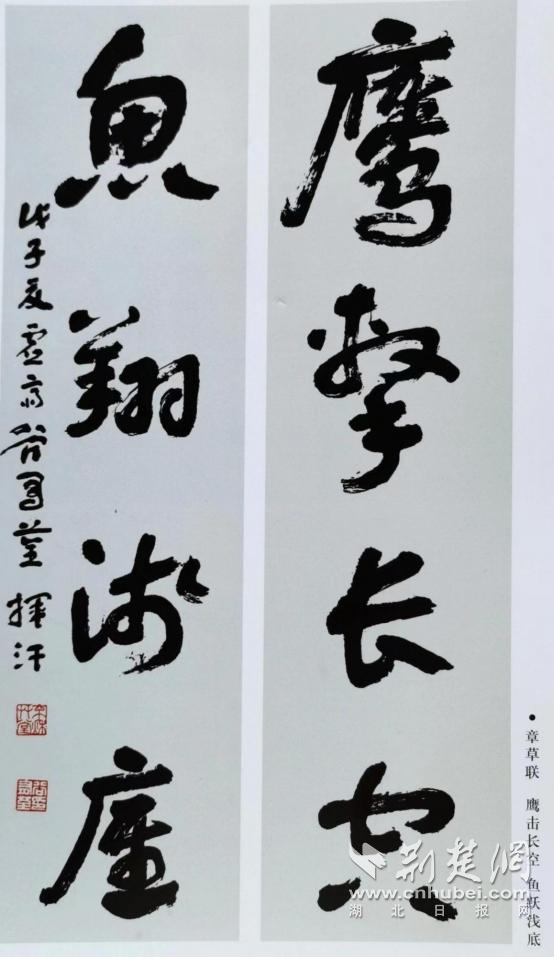 鹰击长空
鱼翔浅底
戊子夏
挥汗
●章草联 鹰击长空 鱼跃浅底
荆楚网
www.cnhubei.com
湖北日报网